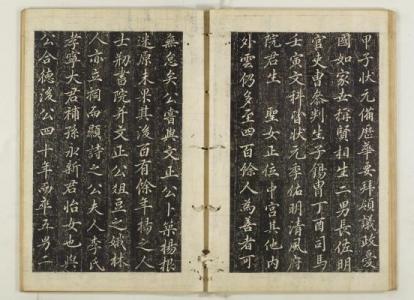 甲子狀元備歷華要拜領議政憂
國如家世稱賢相生二男長佐明
官吏曹參判生子錫胄丁酉司馬
壬寅文科皆狀元季佑明清風府
院君生 聖女正位中宮其他內
外雲仍多至四百餘人為善者可
無怠矣公嘗與文正公卜築楊根
迷原未果其後百有餘年楊之人
士刱書院并文正公俎豆之娥林
人亦立祠而之公夫人李氏
孝寧大君補孫永新君怡女也與
公合德後公四十年而卒五男一